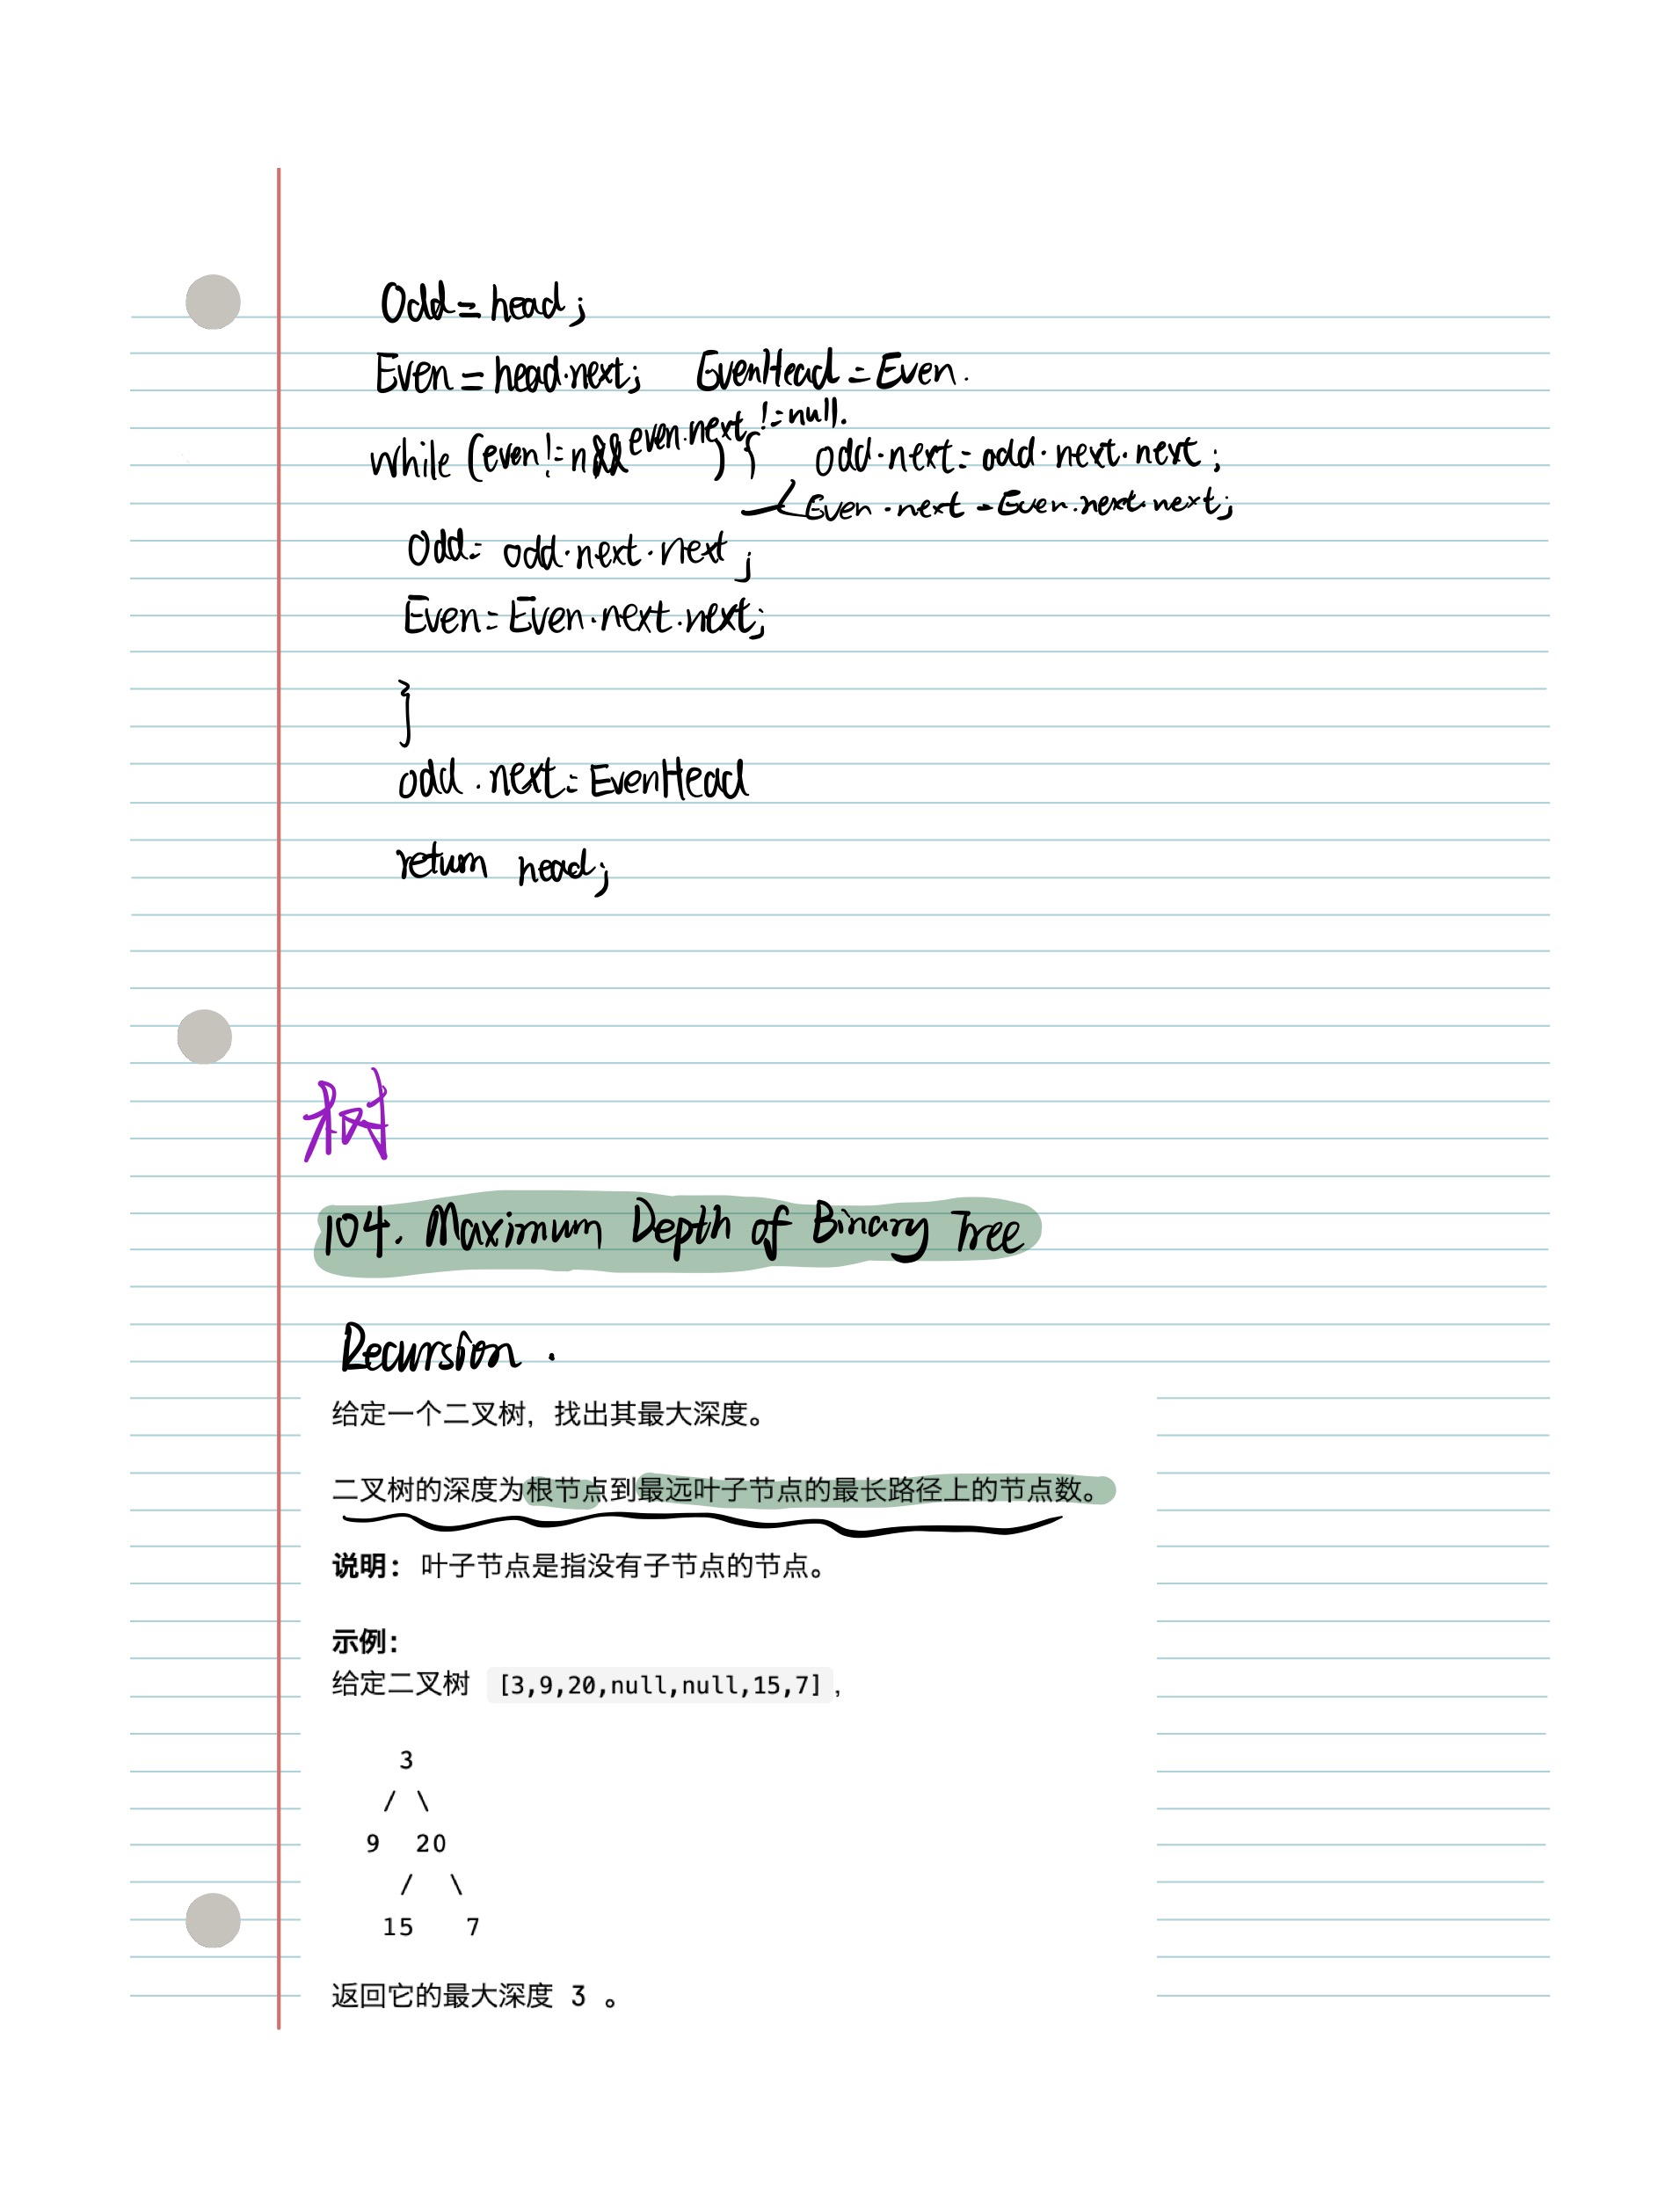 Odd = head;
Even = head.next; EvenHead = Even.
while (even != n && even.next != null.) { odd.next = odd.next.next;
Even.next = Even.next.next;
Odd = odd.next.next;
Even = Even.next.next;
}
odd.next = EvenHead
return head;
树
104. Maximum Depth of Binary Tree
Recursion.
给定一个二叉树，找出其最大深度。
二叉树的深度为根节点到最远叶子节点的最长路径上的节点数。
说明：叶子节点是指没有子节点的节点。
示例：
给定二叉树 [3,9,20,null,null,15,7]，
3
/ \
9 20
/ \
15 7
返回它的最大深度 3 。